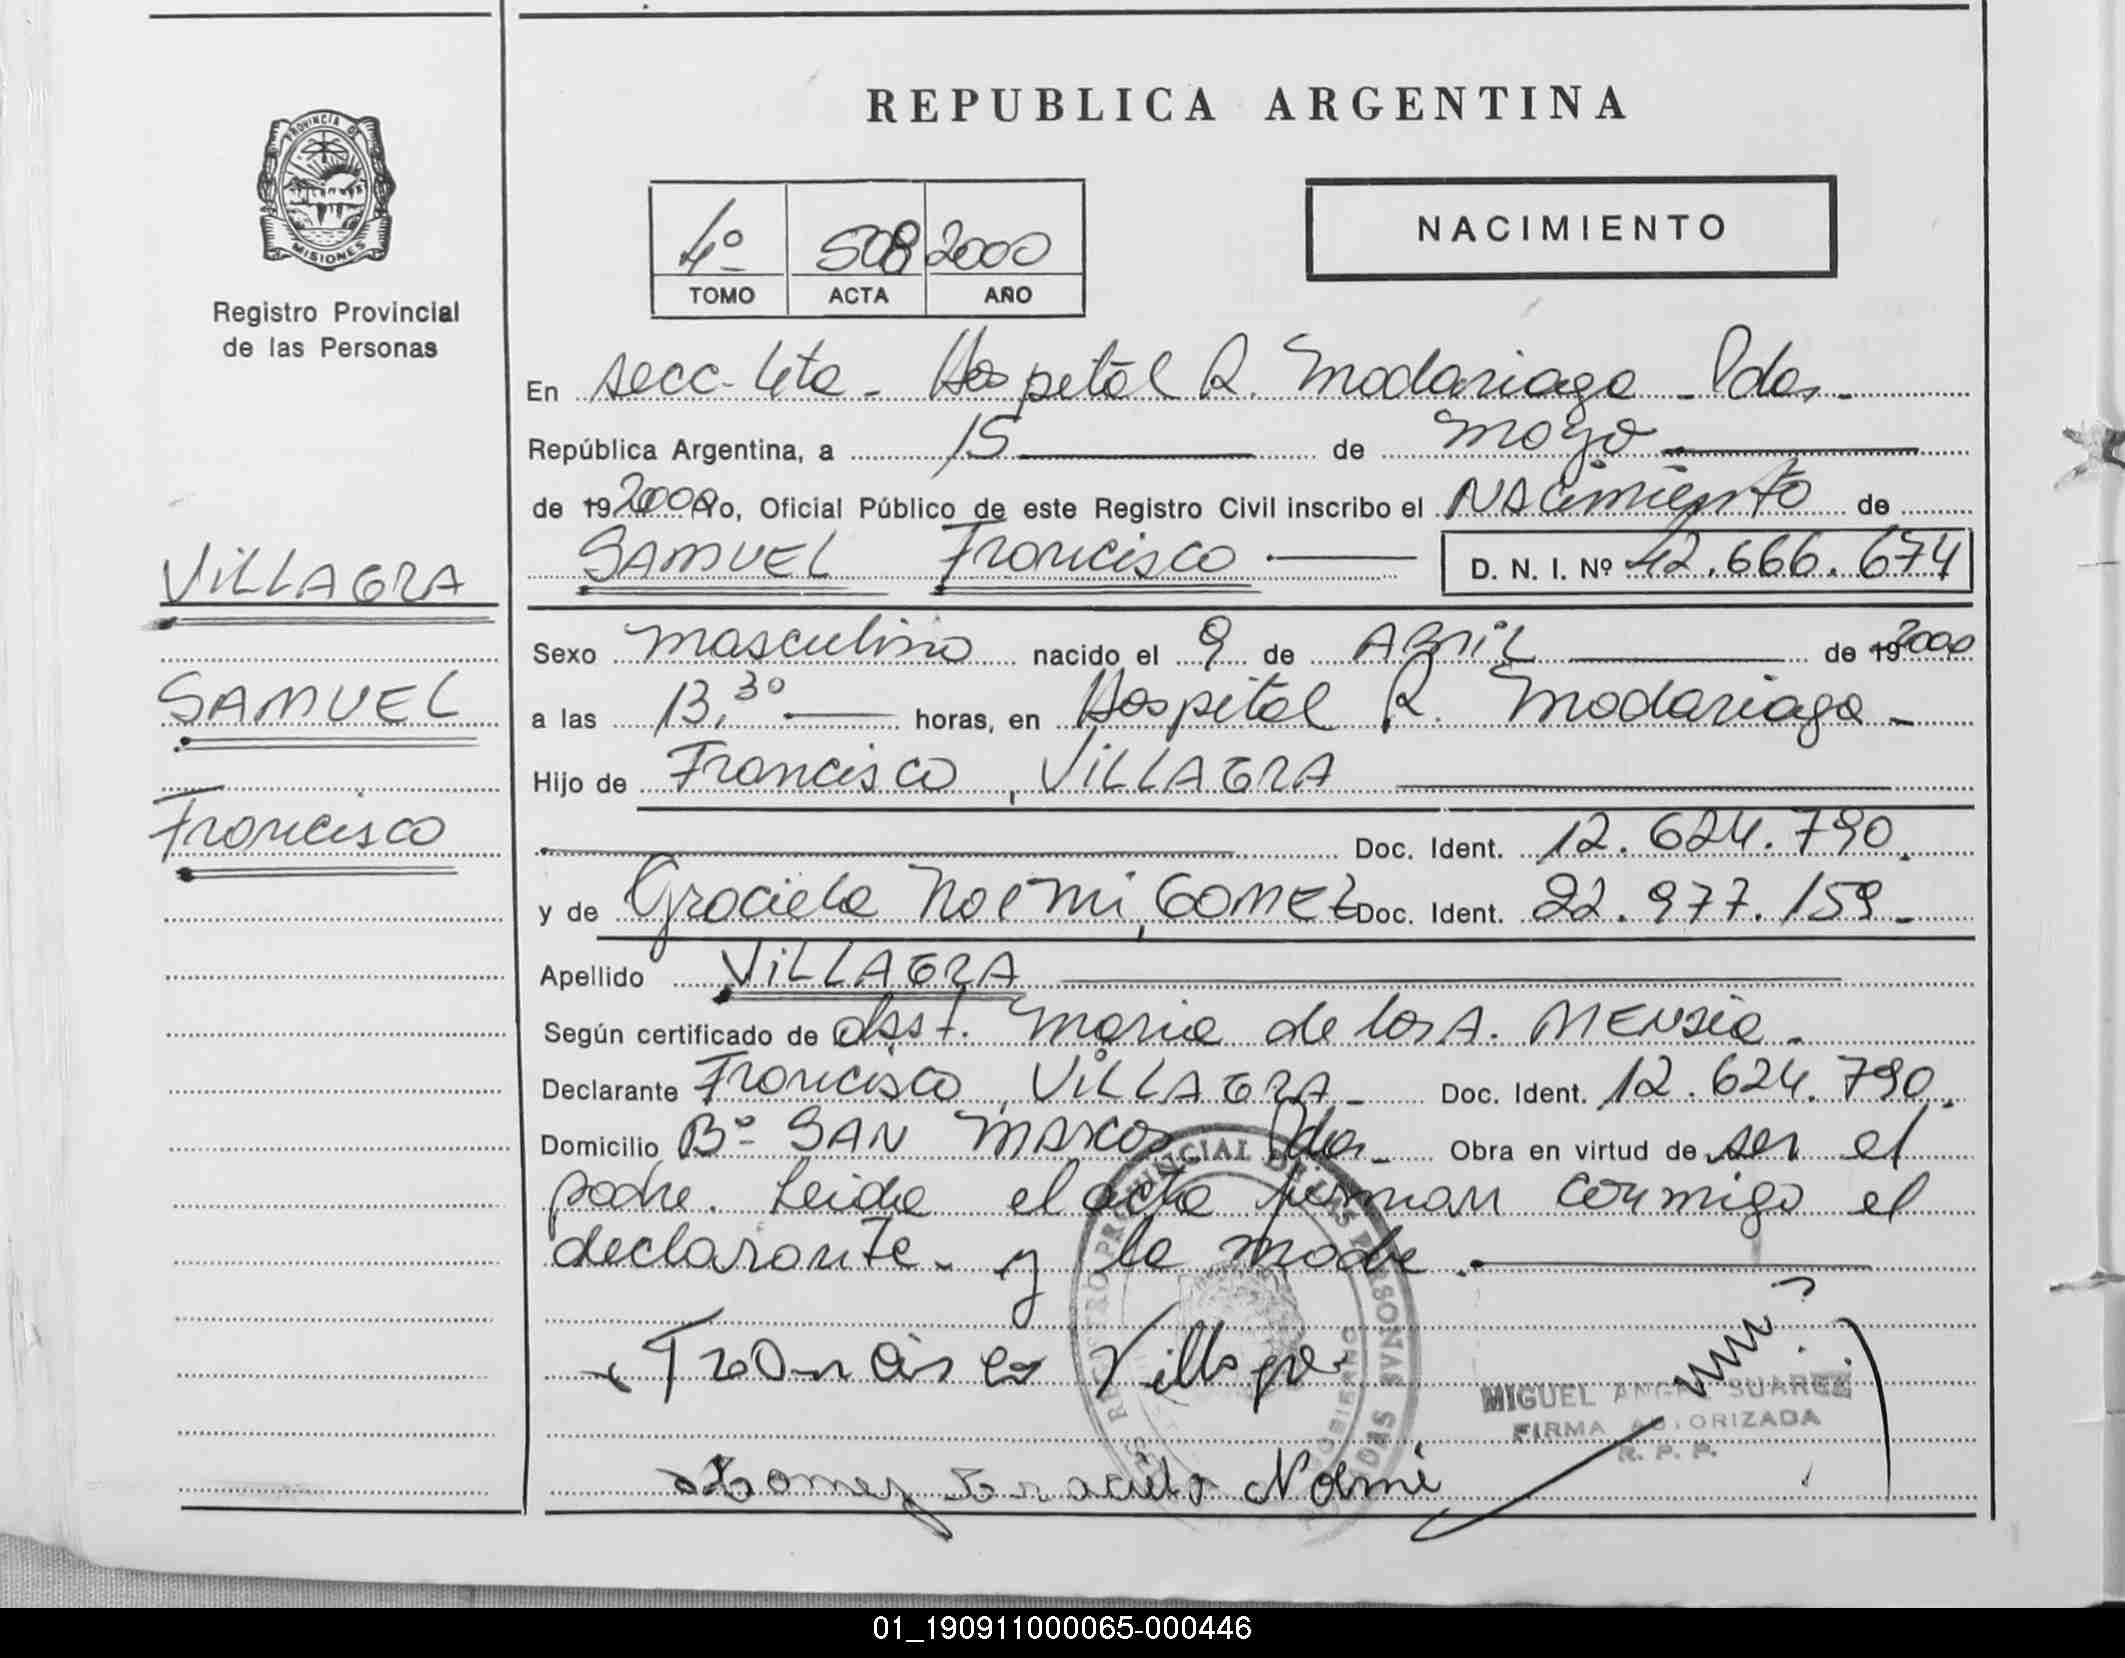 REPUBLICA ARGENTINA
PROVINCIA DE
MISIONES
Registro Provincial
de las Personas
4º 508 2000
TOMO ACTA AÑO
NACIMIENTO
En secc. 4ta - Hospital R. Madariaga - Pdas.
República Argentina, a 15 de mayo
de 19 2000 Yo, Oficial Público de este Registro Civil inscribo el NACimiento de
SAMUEL Francisco D. N. I. Nº 42.666.674
VILLAGRA
SAMUEL
Francisco
Sexo masculino nacido el 9 de ABRIL de 19 2000
a las 13,30 horas, en Hospital R. Madariaga -
Hijo de Francisco, VILLAGRA
Doc. Ident. 12.624.790.
y de Graciela Noemi, GOMEZ Doc. Ident. 22.977.159 -
Apellido VILLAGRA
Según certificado de obst. Maria de los A. MENSia -
Declarante Francisco, VILLAGRA - Doc. Ident. 12.624.790.
Domicilio Bº SAN MARCOS Pdas. Obra en virtud de ser el
padre. Leida el acta firman conmigo el
declarante - y la madre.
Francisco Villagra
MIGUEL ANGEL SUAREZ
FIRMA AUTORIZADA
R. P. P.
Gomez Graciela Noemi
REGISTRO PROVINCIAL DE LAS PERSONAS
01_190911000065-000446